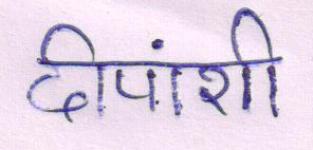 दीपांशी